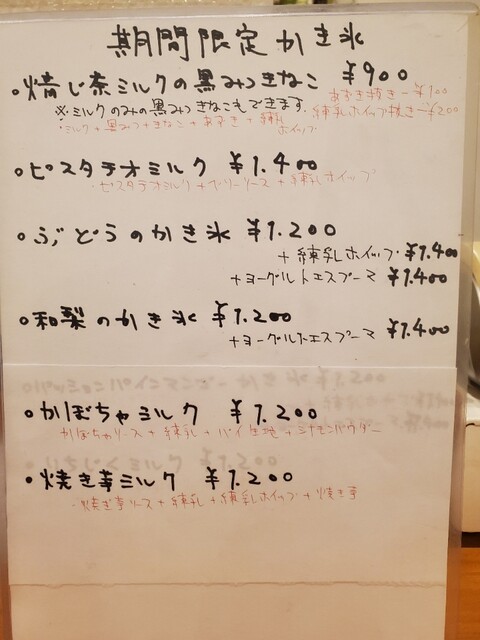 期間限定かき氷
・焙じ茶ミルクの黒みつきなこ ¥900
あずき抜き-¥100
※ミルクのみの黒みつきなこもできます。練乳ホイップ抜き-¥200
ミルク+黒みつ+きなこ+あずき+練乳
ホイップ
・ピスタチオミルク ¥1.400
・ピスタチオミルク+ベリーソース+練乳ホイップ
・ぶどうのかき氷 ¥1.200
+練乳ホイップ ¥1.400
+ヨーグルトエスプーマ ¥1.400
・和梨のかき氷 ¥1.200
+ヨーグルトエスプーマ ¥1.400
・かぼちゃミルク ¥1.200
かぼちゃソース+練乳+パイ生地+シナモンパウダー
・焼き芋ミルク ¥1.200
・焼き芋ソース+練乳+練乳ホイップ+焼き芋